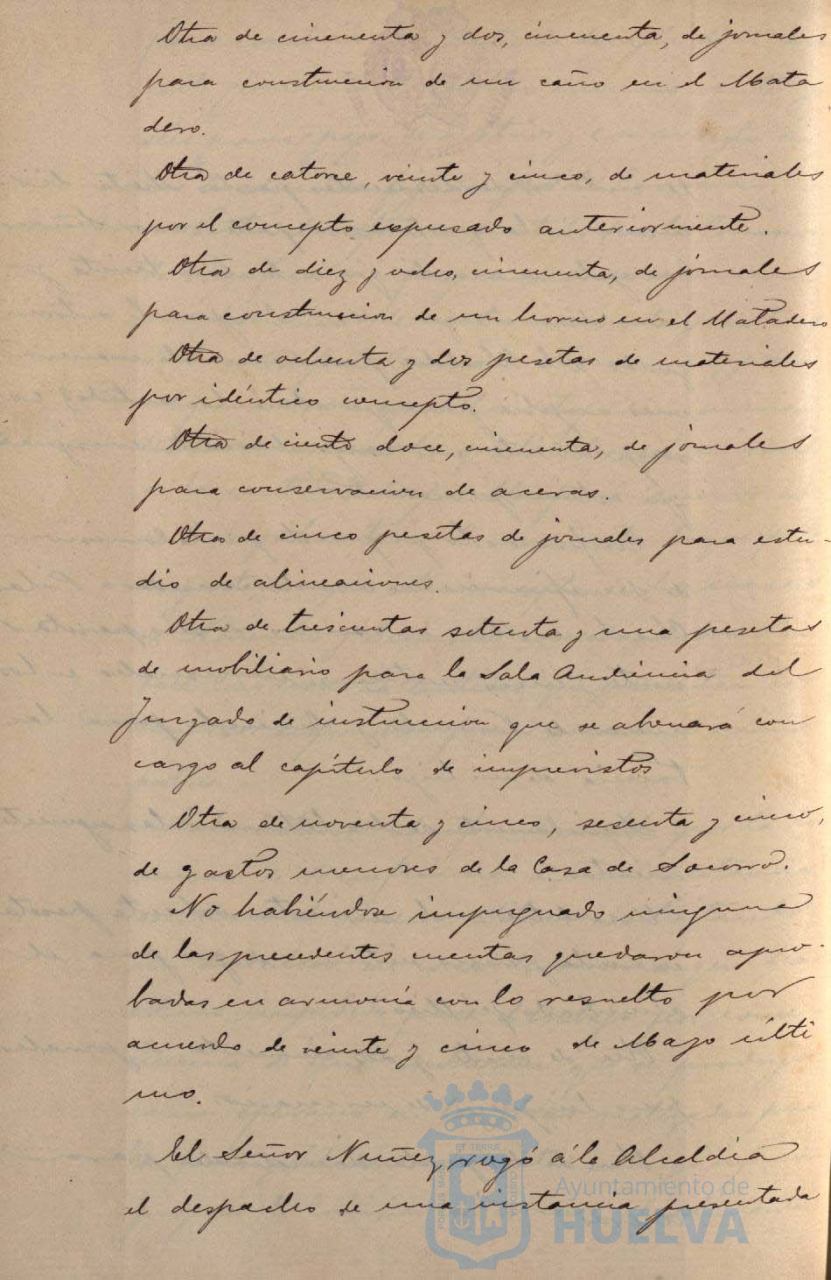 Otra de cincuenta y dos, cincuenta, de jornales
para construccion de un caño en el Mata
dero.
Otra de catorce, veinte y cinco, de materiales
por el concepto expresado anteriormente.
Otra de diez y ocho, cincuenta, de jornales
para construccion de un horno en el Matadero
Otra de ochenta y dos pesetas de materiales
por idéntico concepto.
Otra de ciento doce, cincuenta, de jornales
para conservacion de aceras.
Otra de cinco pesetas de jornales para estu-
dio de alineaciones.
Otra de trescientas setenta y una pesetas
de mobiliario para la Sala Audiencia del
Juzgado de instruccion que se abonará con
cargo al capítulo de imprevistos
Otra de noventa y cinco, sesenta y cinco,
de gastos menores de la Casa de Socorro.
No habiéndose impugnado ninguna
de las precedentes cuentas quedaron apro-
badas en armonía con lo resuelto por
acuerdo de veinte y cinco de Mayo últi
mo.
El Señor Nuñez rogó á la Alcaldía
el despacho de una instancia presentada
Ayuntamiento de
HUELVA